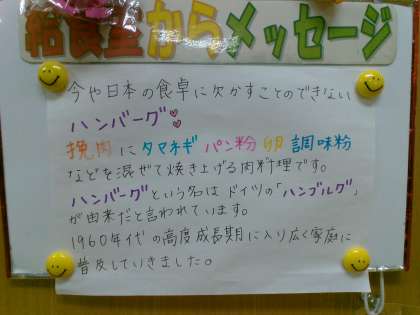 給食室からメッセージ
今や日本の食卓に欠かすことのできない
ハンバーグ♡♡
挽肉にタマネギ パン粉 卵 調味粉
などを混ぜて焼き上げる肉料理です。
ハンバーグという名はドイツの「ハンブルグ」
が由来だと言われています。
1960年代の高度成長期に入り広く家庭に
普及していきました。